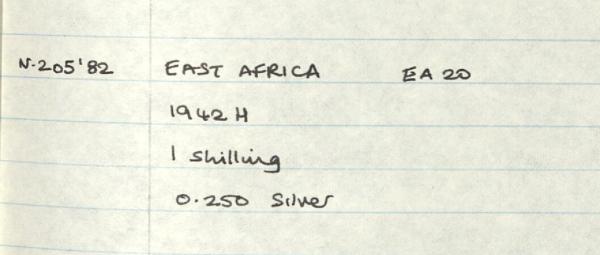 N-205'82 EAST AFRICA EA 20
1942 H
1 Shilling
0.250 Silver